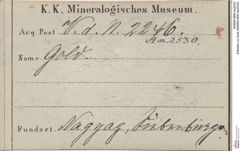 K. K. Mineralogisches Museum.
Acq. Post V. d. N. 2246.
Aa. 2530.
Name: Gold.
Fundort: Nagyag, Siebenbürgen